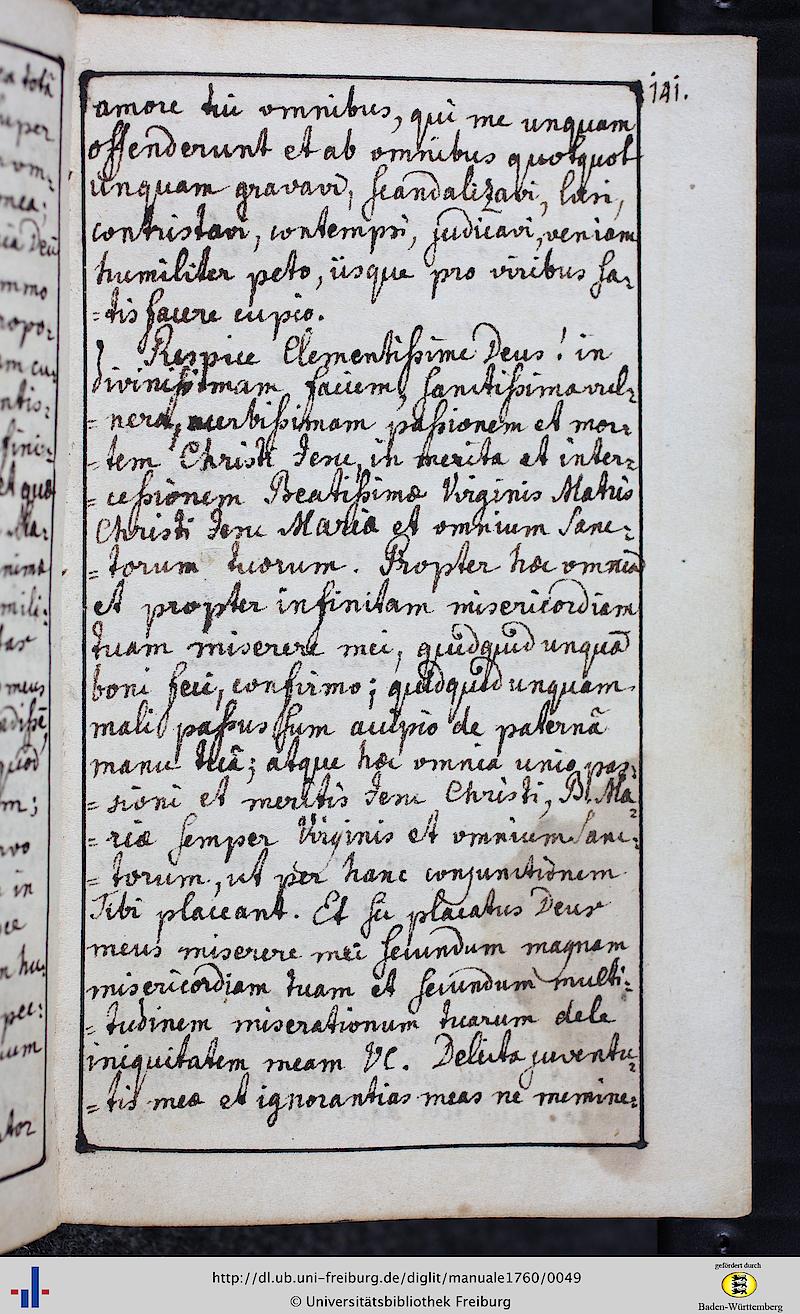 141.
amore tui omnibus, qui me unquam
offenderunt et ab omnibus quotquot
unquam gravavi, scandalizavi, læsi,
contristavi, contempsi, judicavi, veniam
humiliter peto, iisque pro viribus sa-
-tisfacere cupio.
Respice Clementissime Deus! in
divinissimam faciem, sanctissima vul-
-nera, acerbissimam passionem et mor-
-tem Christi Jesu, in merita et inter-
-cessionem Beatissimæ Virginis Matris
Christi Jesu Mariæ et omnium Sanc-
-torum tuorum. Propter hæc omnia
et propter infinitam misericordiam
tuam miserere mei, quidquid unquā
boni feci, confirmo; quidquid unquam
mali passus sum accipio de paternâ
manu tuâ; atque hæc omnia unio pas-
-sioni et meritis Jesu Christi, B. Ma-
-riæ semper Virginis et omnium Sanc-
-torum, ut per hanc conjunctionem
Tibi placeant. Et sic placatus Deus
meus miserere mei secundum magnam
misericordiam tuam et secundum multi-
-tudinem miserationum tuarum dele
iniquitatem meam &c. Delicta juventu-
-tis meæ et ignorantias meas ne memine-
http://dl.ub.uni-freiburg.de/diglit/manuale1760/0049
© Universitätsbibliothek Freiburg
gefördert durch
Baden-Württemberg